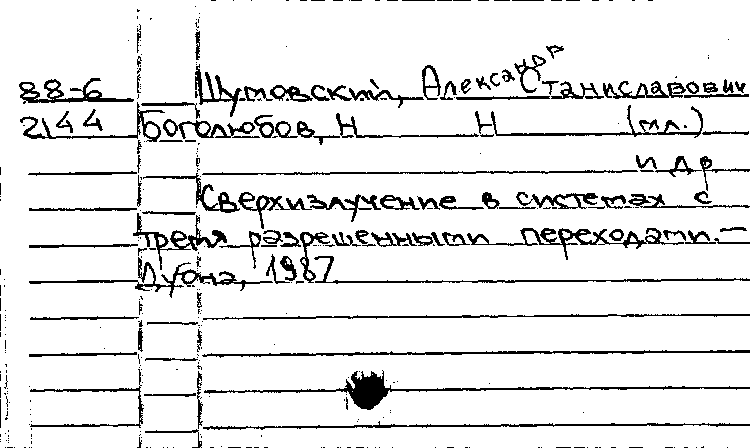 88-6 Шумовский, Александр Станиславович
2144 Боголюбов, Н Н (мл.)
и др.
Сверхизлучение в системах с
тремя разрешенными переходами.—
Дубна, 1987.